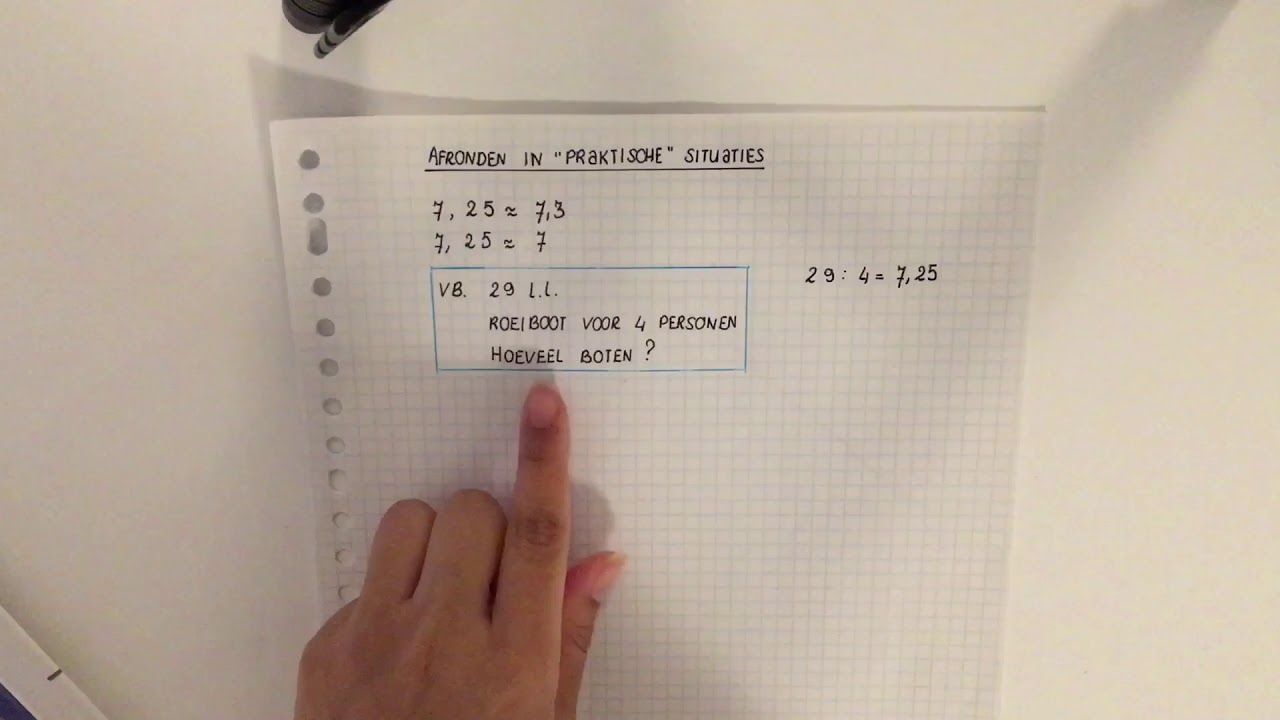 AFRONDEN IN "PRAKTISCHE" SITUATIES
7,25 ≈ 7,3
7,25 ≈ 7
VB. 29 l.l.
ROEIBOOT VOOR 4 PERSONEN
HOEVEEL BOTEN ?
29 : 4 = 7,25